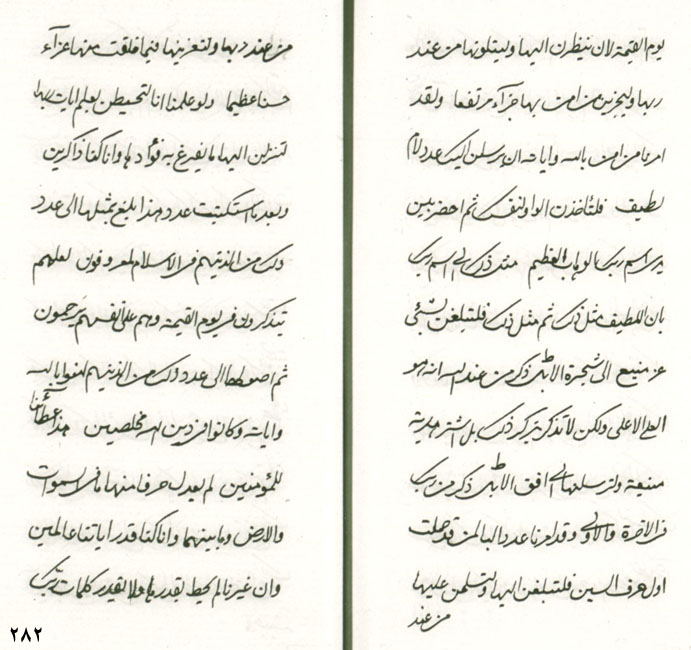 يوم القيمة لان ينظرن اليها وليتلونها من عند
ربها وليجزين من امن بها جزآء مرتفعا ولقد
امرنا من امن بالله واياته ان يرسلن اليك عدد لام
لطيف فلتأخذن الواو لنفسك ثم احضر بين
يدى اسم ربك بالوهاب العظيم مثل ذلك الى اسم ربك
بان اللطيف مثل ذلك ثم مثل ذلك فلتبلغن بشئ
عز منيع الى شجرة الابهى ذكر من عند الله انه هو
العلى الاعلى ولكن لا تذكر ذلك بل اشتر هدية
منيعة ولترسلنها الى افق الابهى ذكر من ربك
فى الاخرة والاولى وقد امرنا عدد البا لمن قد صلت
اول حرف السين فلتبلغن اليها ولتسلمن عليها
من عند
من عند ربها ولتعزينها فيما فلقت منها عزآء
حسنا عظيما ولو علمنا انا لتحيطن بعلم ايات ربها
لتنزلن اليها ما يفرغ به فؤادها وانا كنا ذاكرين
وبعد ما استكتبت عدد هذا بلغ بمثلها الى عدد
ذلك من الذينهم فى الاسلام لمعروفون لعلهم
يتذكرون فى يوم القيمة وهم على انفسهم يرحمون
ثم اصولها الى عدد ذلك من الذينهم امنوا بالله
واياته وكانوا فى دين الله مخلصين هذا عطائنا
للمؤمنين لم يعدل حرفا منها ما فى السموات
والارض وما بينهما وانا كنا قدر اياتنا عالمين
وان غيرنا لم يحط بقدرها ولا بقدر كلمات ربك
٢٨٢